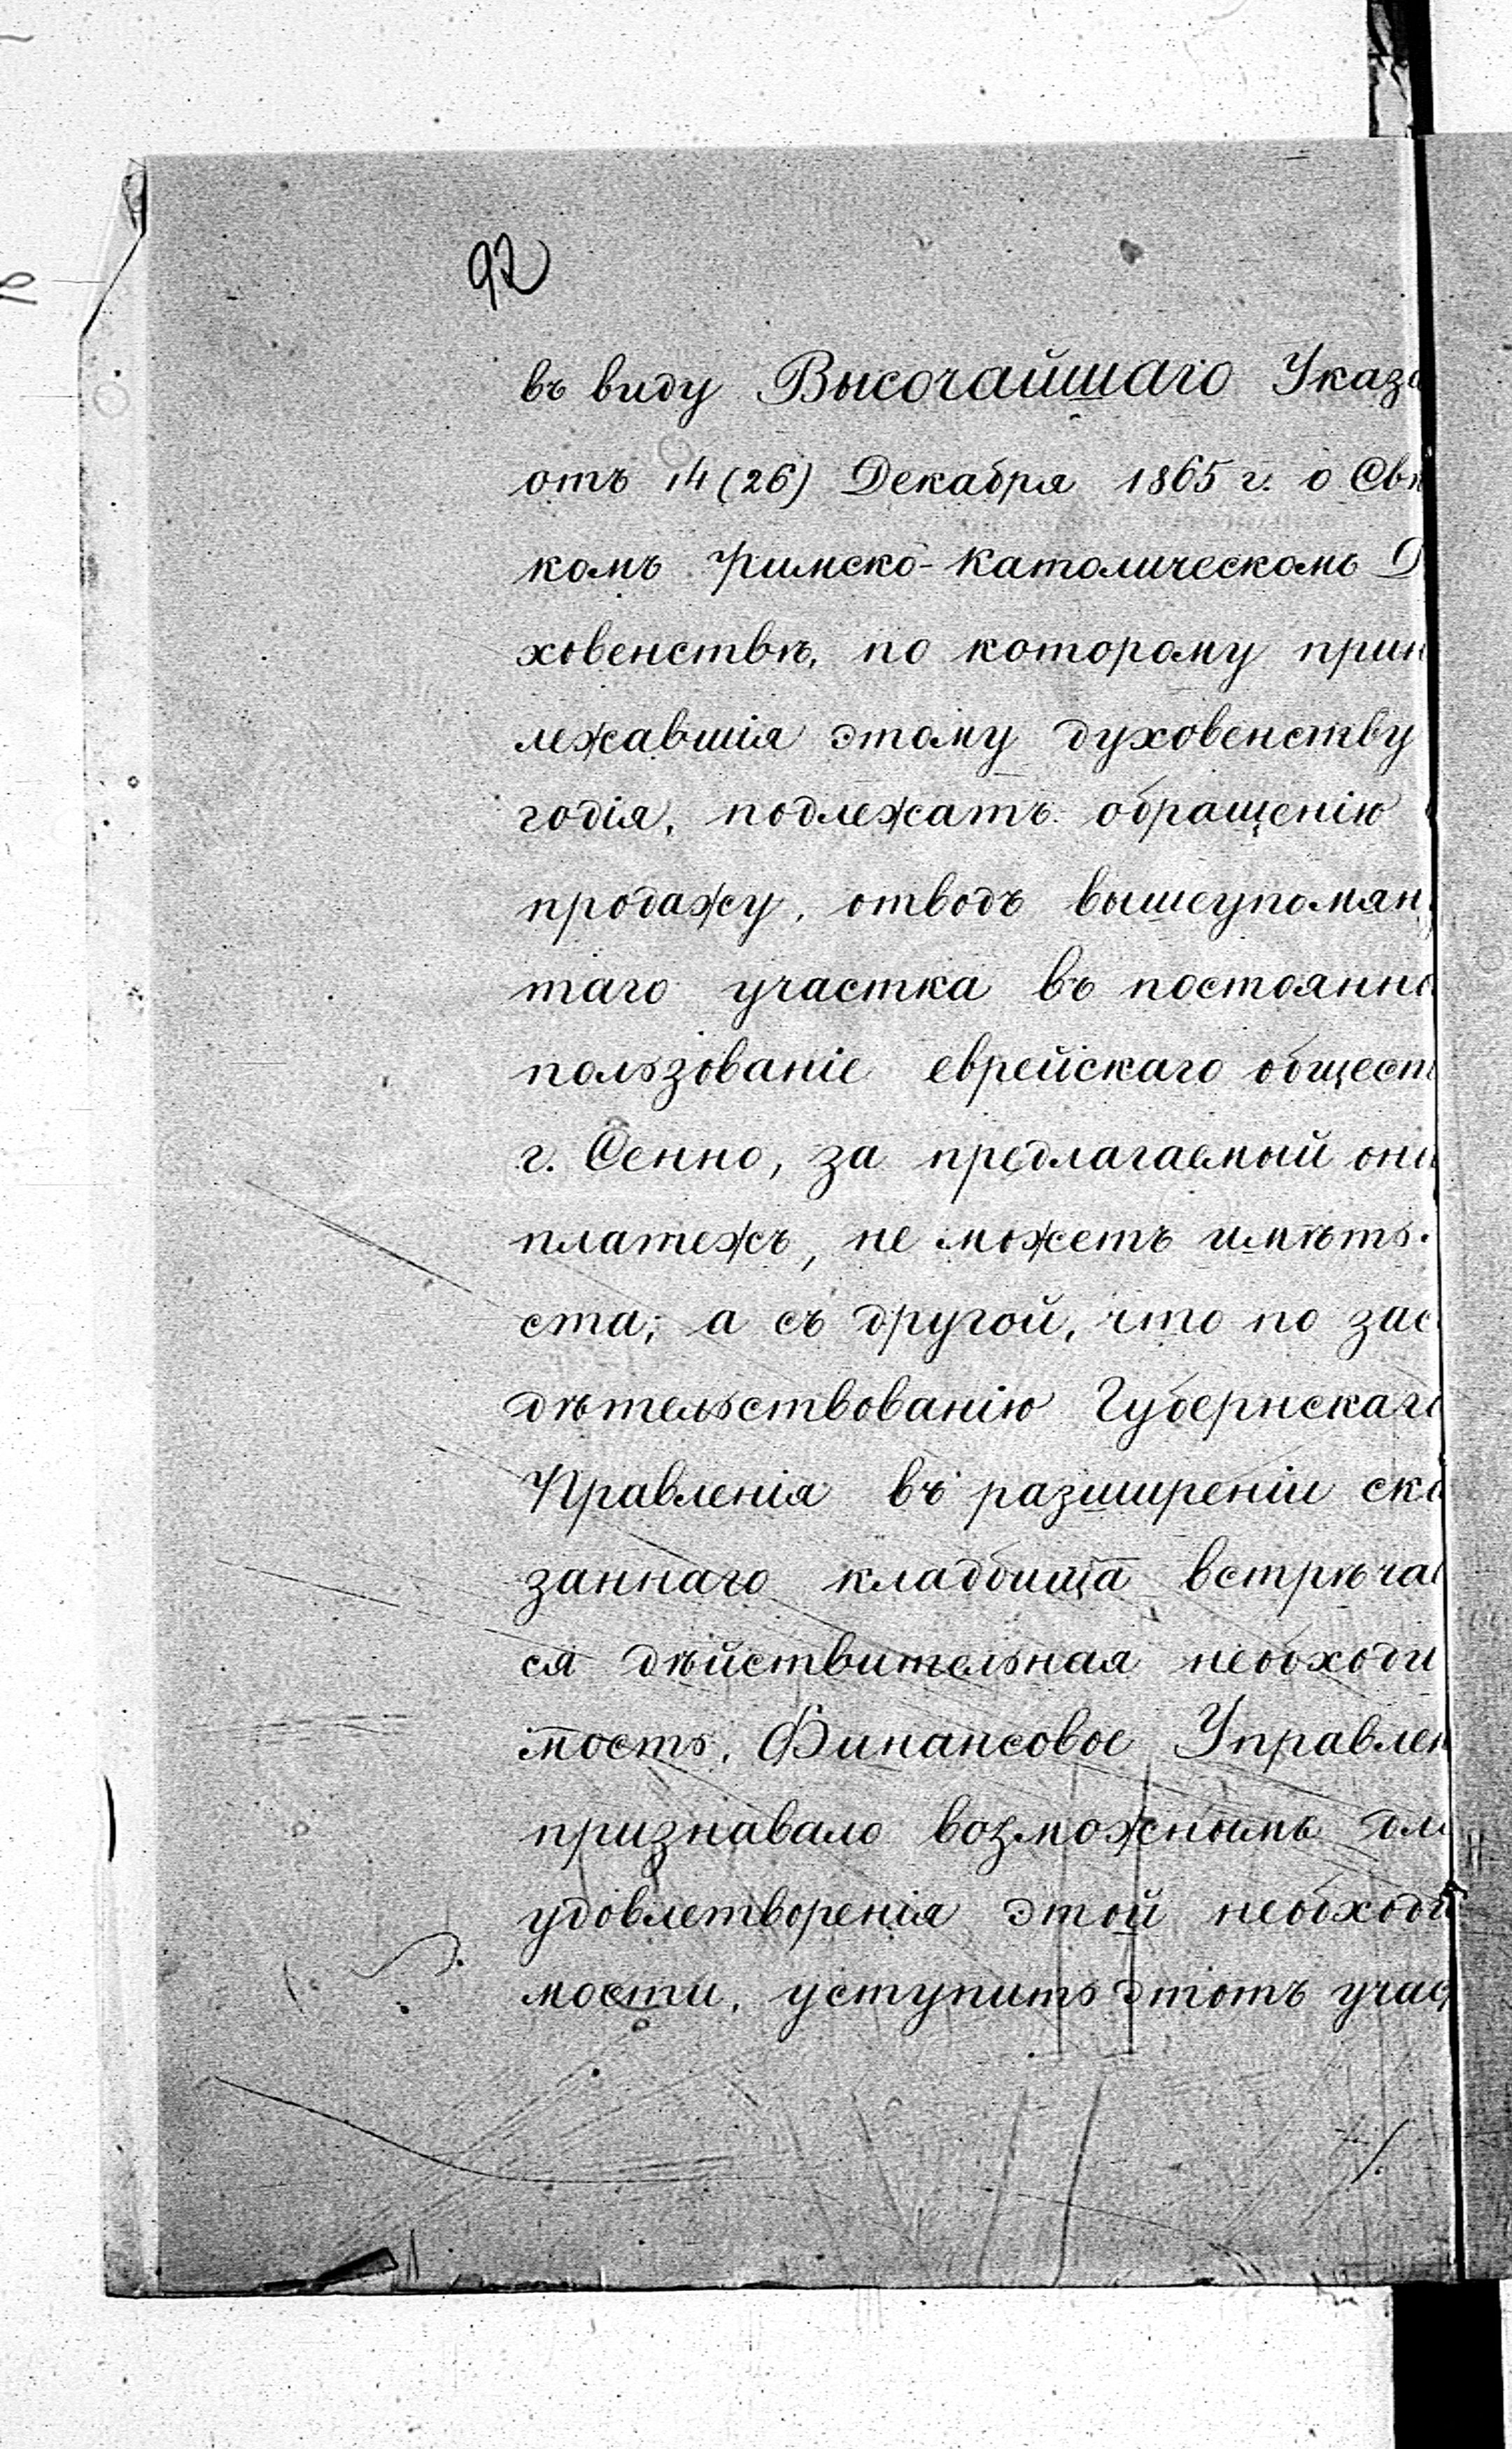 92
въ виду Высочайшаго Указа
отъ 14 (26) Декабря 1865 г. о Свѣ
комъ Римско-Католическомъ Д
ховенствѣ, по которому прин
лежавшія этому духовенству
годія, подлежатъ обращенію
продажу, отводъ вышеупомян
таго участка въ постоянно
пользованіе еврейскаго общест
г. Сенно, за предлагаемый они
платежъ, не можетъ имѣть
ста; а съ другой, что по зас
дѣтельствованію Губернскаго
Правленія въ разширеніи ска
заннаго кладбища встрѣчае
ся дѣйствительная необходи
мость, Финансовое Управлен
признавало возможнымъ для
удовлетворенія этой необходи
мости, уступить этотъ учас